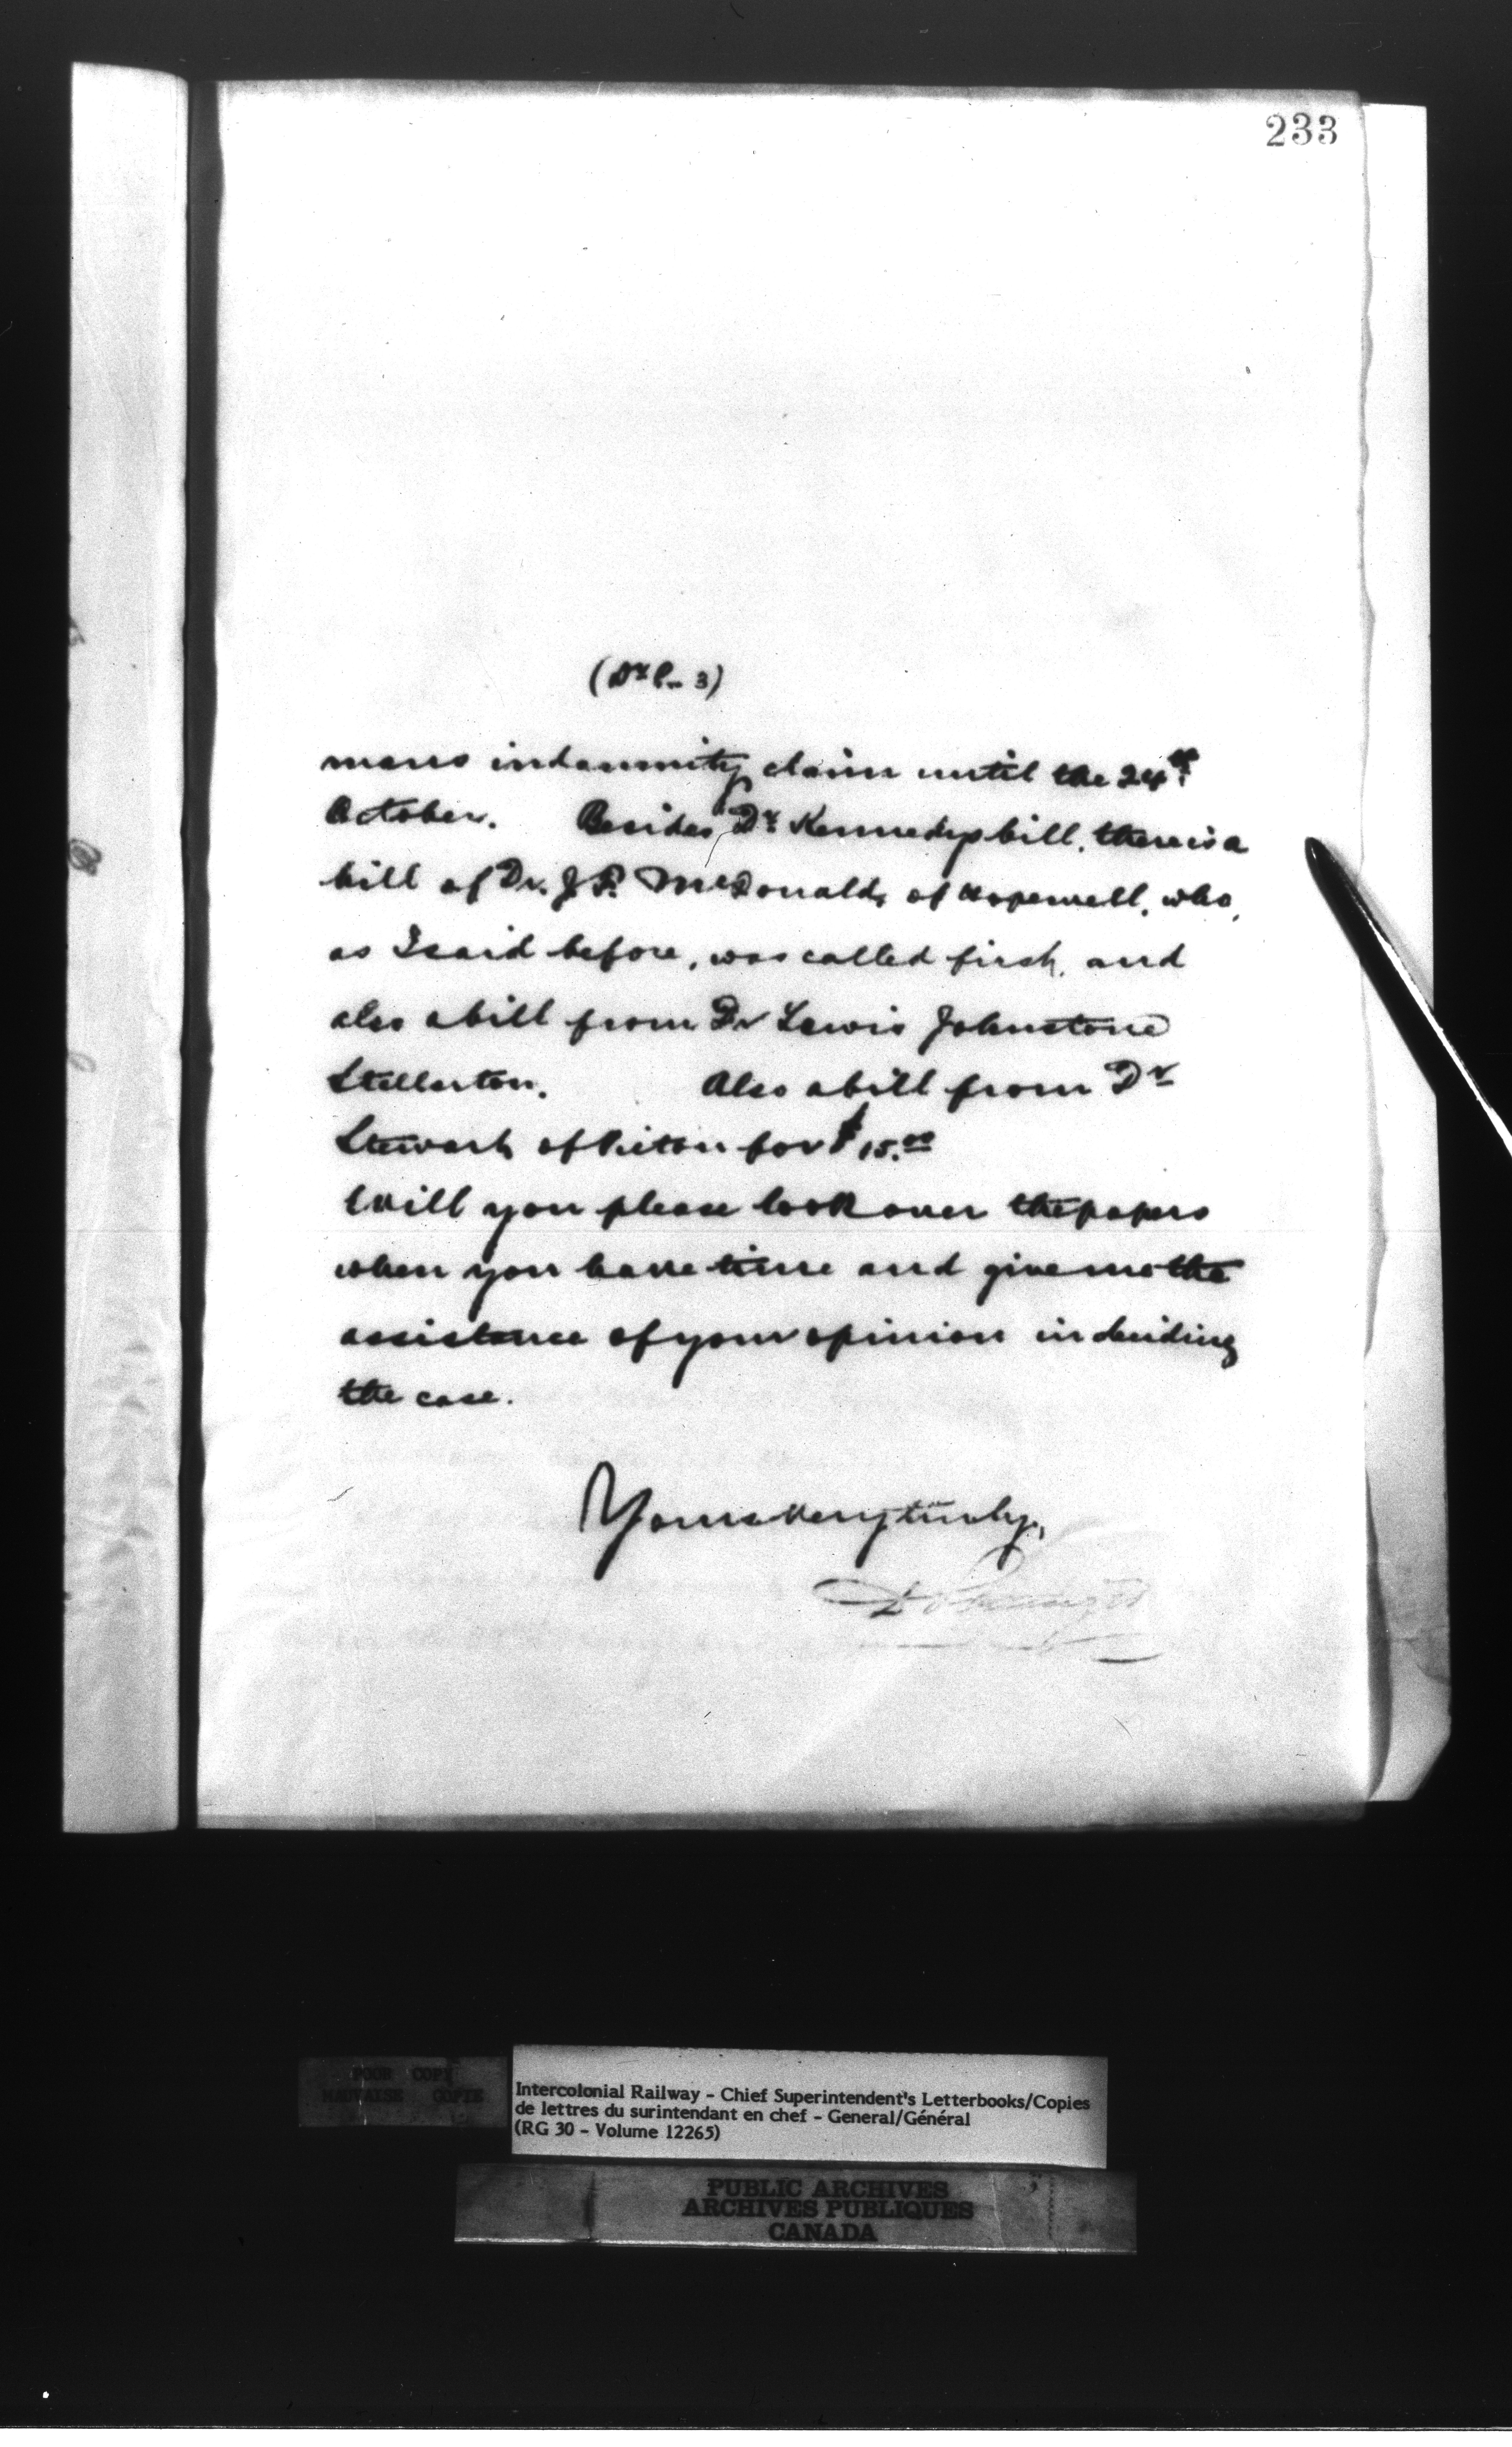 233
(Dr P- 3)
mans indemnity claim until the 24th
October. Besides Dr Kennedys bill, there is a
bill of Dr. J.P. McDonald, of Hopewell, who,
as I said before, was called first, and
also a bill from Dr Lewis Johnstone
Stellarton. Also a bill from Dr
Stewart of Pictou for $15.00
Will you please look over the papers
when you have time and give me the
assistance of your opinion in deciding
the case.
Yours very truly,
POOR COPY
MAUVAISE COPIE
Intercolonial Railway - Chief Superintendent's Letterbooks/Copies
de lettres du surintendant en chef - General/Général
(RG 30 - Volume 12265)
PUBLIC ARCHIVES
ARCHIVES PUBLIQUES
CANADA